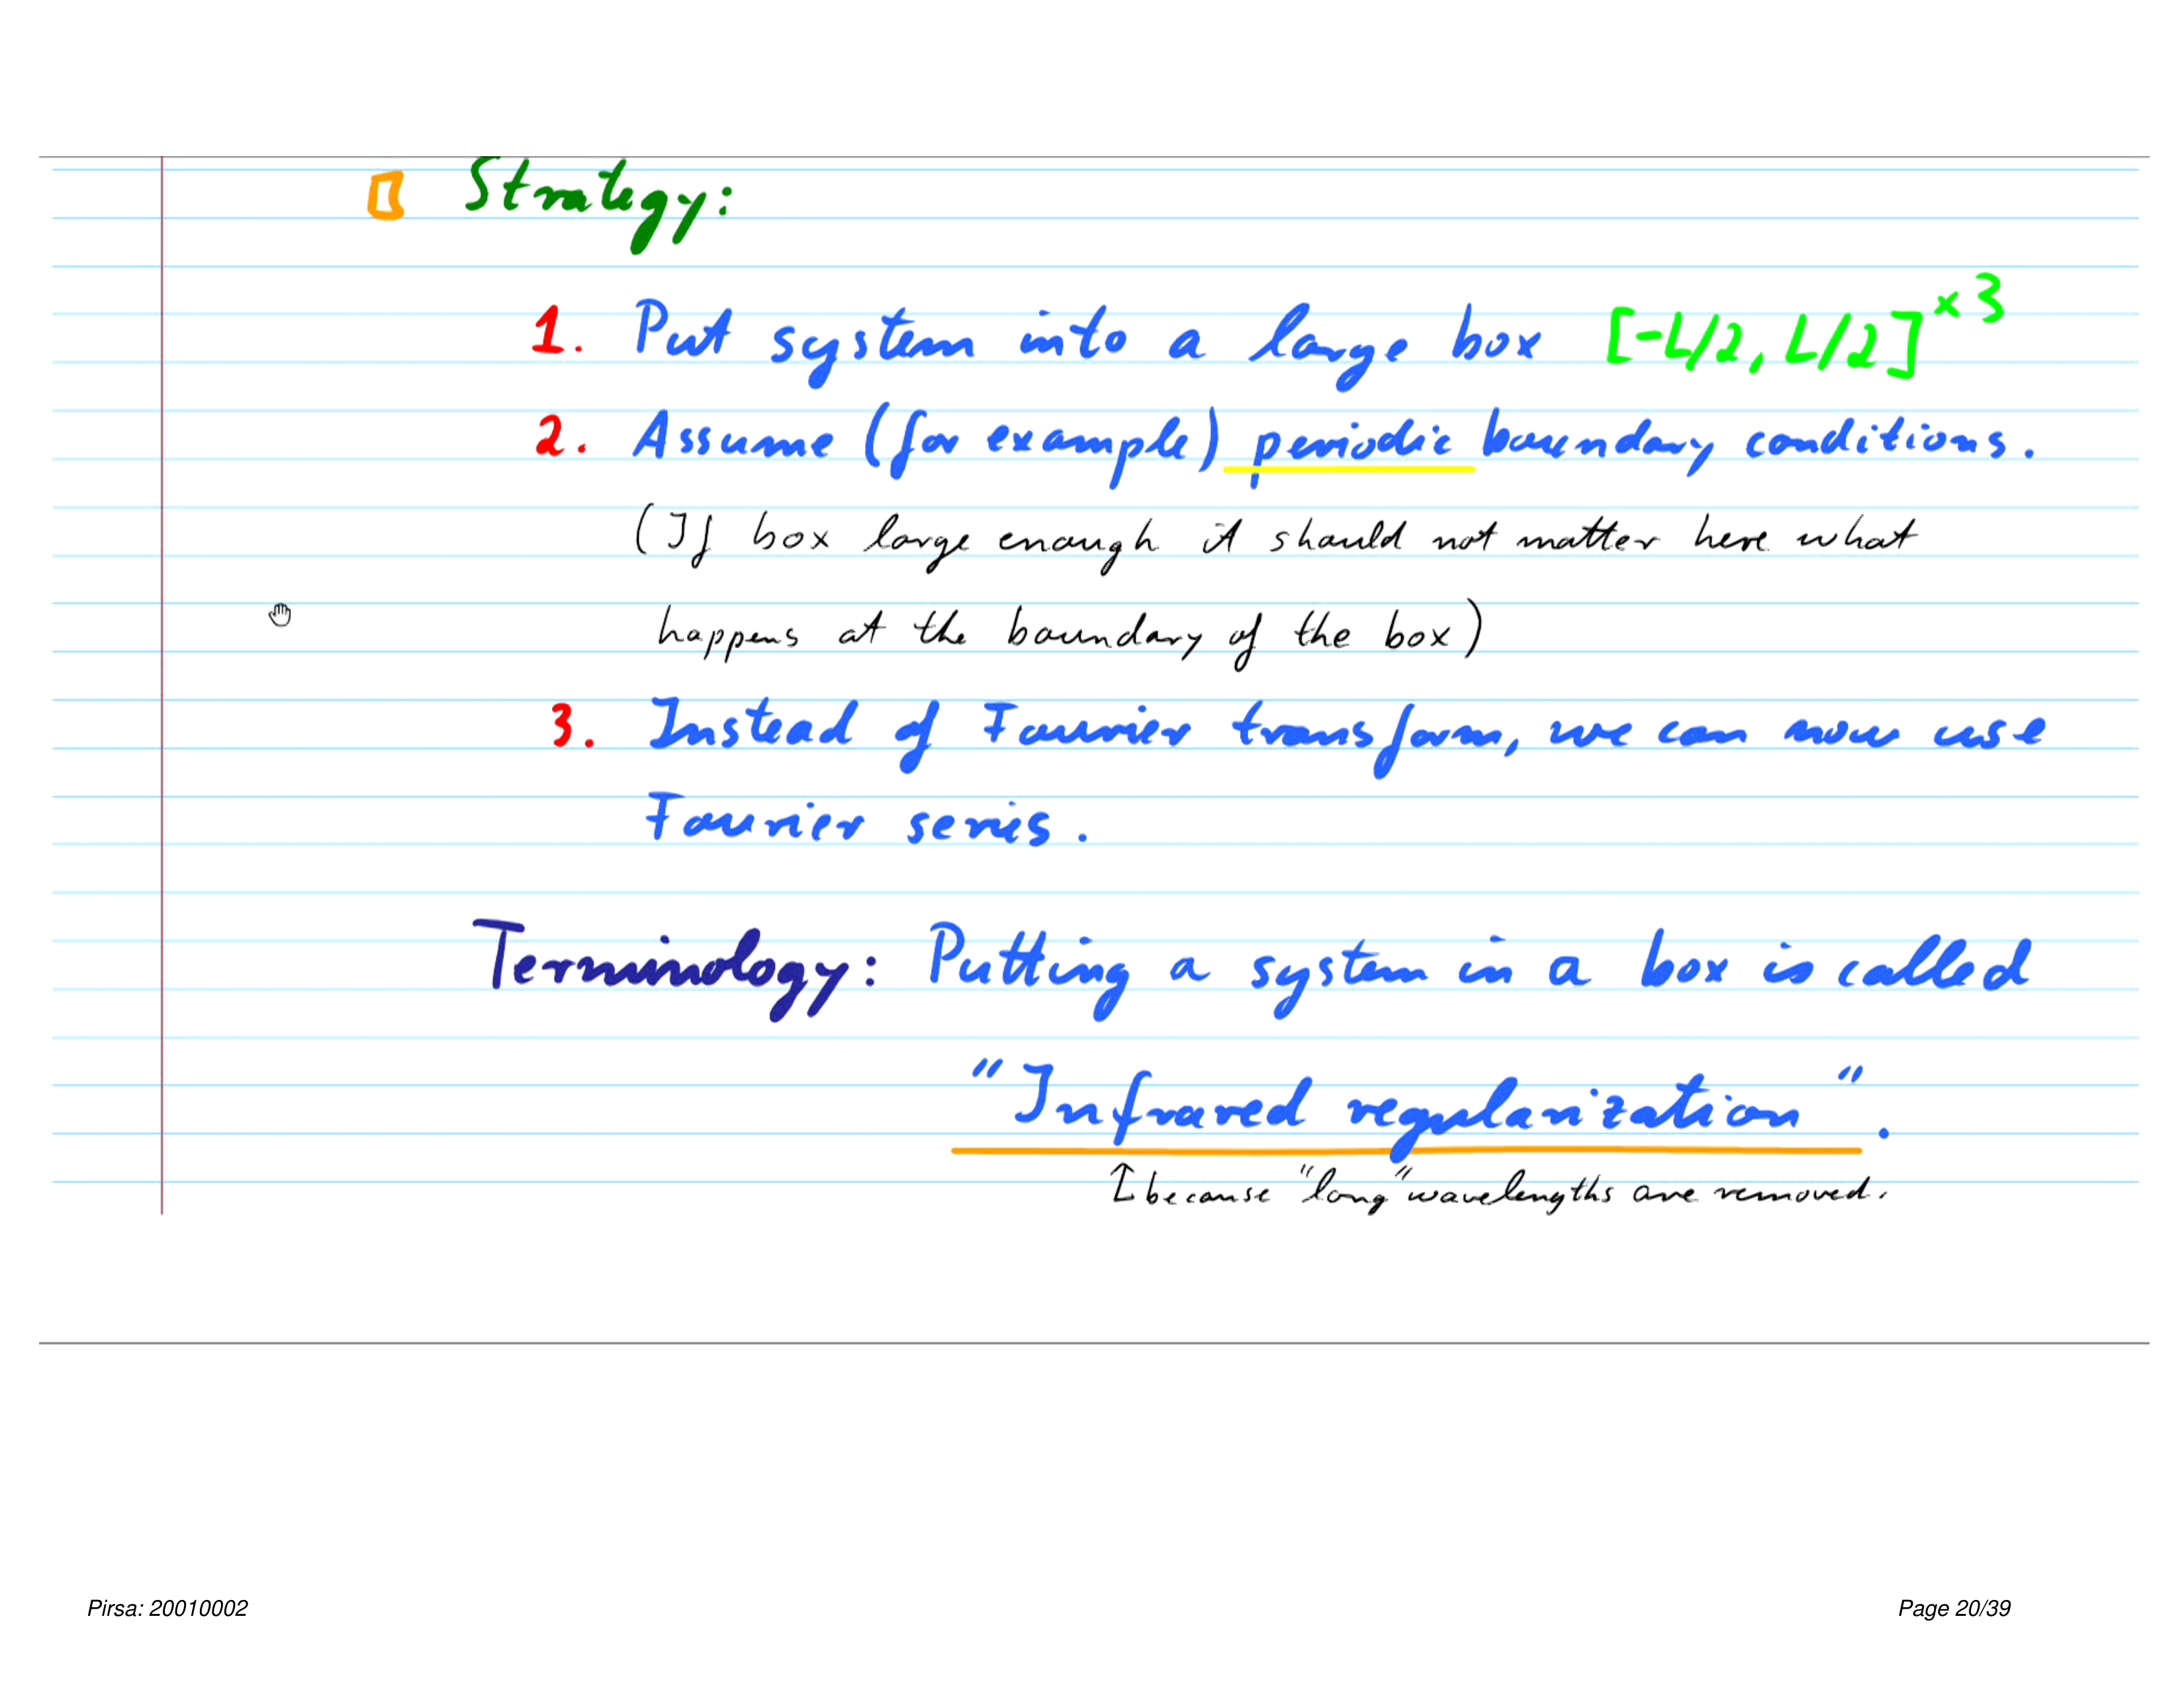 Strategy:
1. Put system into a large box [-L/2, L/2]^{×3}
2. Assume (for example) periodic boundary conditions.
(If box large enough it should not matter here what
happens at the boundary of the box)
3. Instead of Fourier transform, we can now use
Fourier series.
Terminology: Putting a system in a box is called
"Infrared regularization".
↑ because "long" wavelengths are removed.
Pirsa: 20010002
Page 20/39